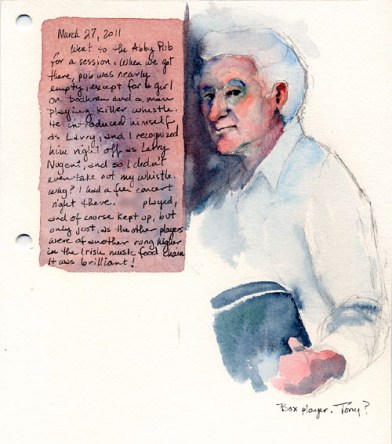 March 27, 2011
Went to the Abby Pub
for a session. When we got
there, pub was nearly
empty, except for a girl
on bodhran and a man
playing killer whistle.
He introduced himself
as Larry, and I recognized
him right off as Larry
Nugent, and so I didn't
even take out my whistle.
Why? I had a free concert
right there. played,
and of course kept up, but
only just, as the other players
were of another rung higher
in the Irish music food chain
It was brilliant!
Box player. Tony?